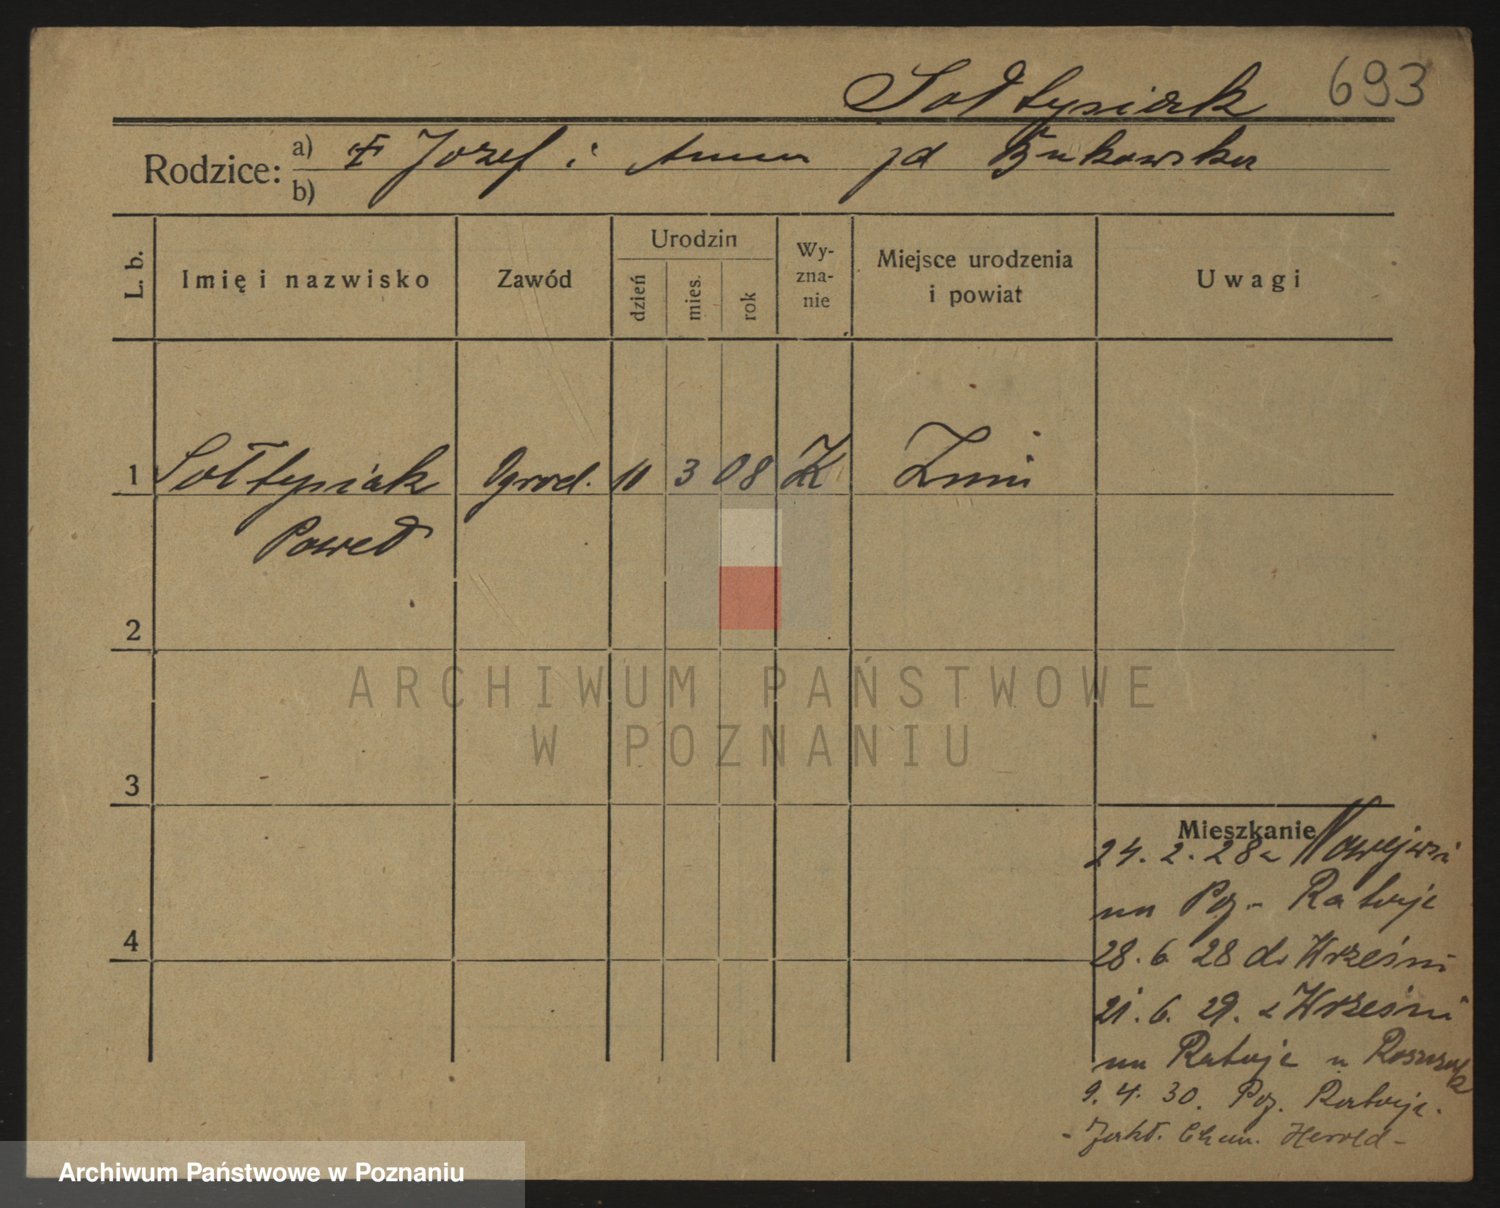 Sołtysiak 693
Rodzice: a) Józef i Anna zd Bukowska
b)
L. b. Imię i nazwisko Zawód Urodzin dzień mies. rok Wy-zna-nie Miejsce urodzenia i powiat Uwagi
1 Sołtysiak Ogrod. 11 3 08 K Żnin
Paweł
2
ARCHIWUM PAŃSTWOWE
W POZNANIU
3
Mieszkanie
24. 2. 28 z Nowejwsi
na Poz. - Rataje
28. 6 28 do Wrześni
21. 6. 29. z Wrześni
na Rataje u
4
9. 4. 30. Poz. Rataje.
- Zakł. Chem. Herold -
Archiwum Państwowe w Poznaniu